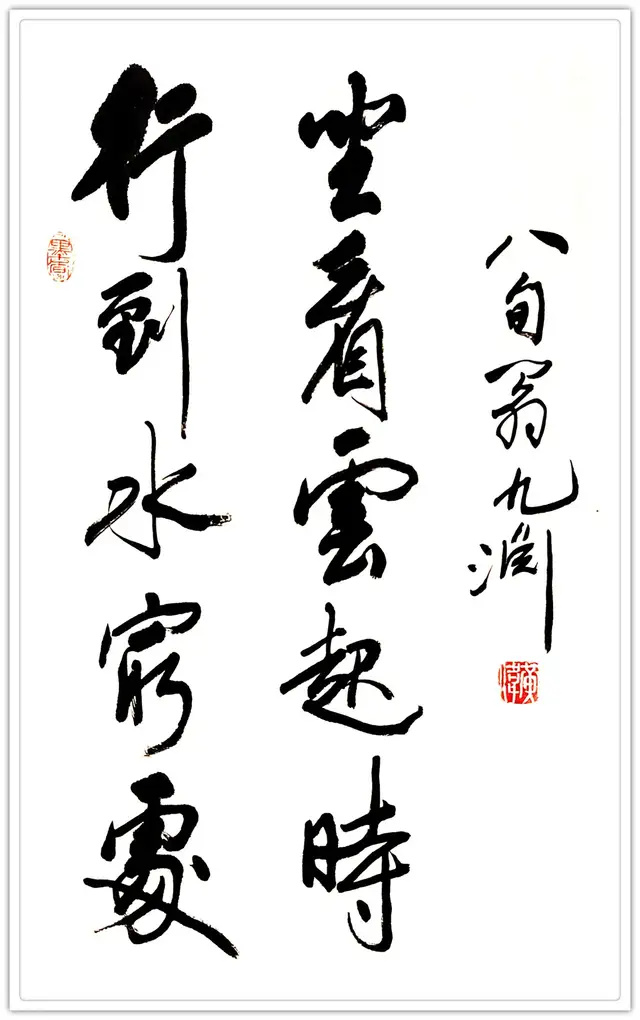 行到水窮處
坐看雲起時
八旬翁九淵